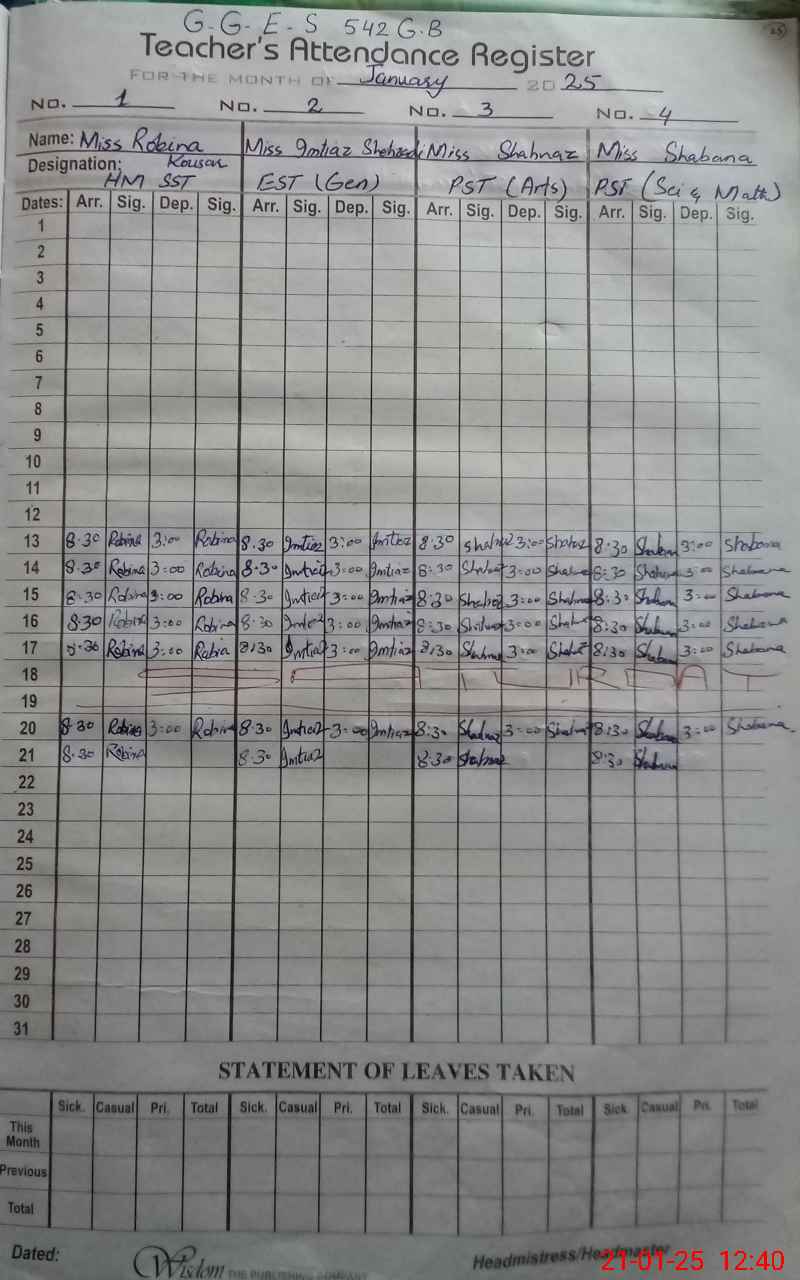 G.G.E.S 542 G.B
25
Teacher's Attendance Register
FOR THE MONTH OF January 2025
No. 1 No. 2 No. 3 No. 4
Name: Miss Robina Miss Imtiaz Miss Shahnaz Miss Shabana
Designation: Kousar
HM SST EST (Gen) PST (Arts) PST (Sci & Math)
Dates: Arr. Sig. Dep. Sig. Arr. Sig. Dep. Sig. Arr. Sig. Dep. Sig. Arr. Sig. Dep. Sig.
1
2
3
4
5
6
7
8
9
10
11
12
13 8.30 Robina 3:00 Robina 8.30 Imtiaz 3:00 Imtiaz 8.30 Shahnaz 3:00 Shahnaz 8.30 Shabana 3:00 Shabana
14 8.30 Robina 3:00 Robina 8.30 Imtiaz 3:00 Imtiaz 8:30 Shahnaz 3:00 Shahnaz 8:30 Shabana 3:00 Shabana
15 8.30 Robina 3:00 Robina 8.30 Imtiaz 3:00 Imtiaz 8:30 Shahnaz 3:00 Shahnaz 8:30 Shabana 3:00 Shabana
16 8:30 Robina 3:00 Robina 8.30 Imtiaz 3:00 Imtiaz 8:30 Shahnaz 3:00 Shahnaz 8:30 Shabana 3:00 Shabana
17 8.30 Robina 3:00 Rabia 8:30 Imtiaz 3:00 Imtiaz 8:30 Shahnaz 3:00 Shahnaz 8:30 Shabana 3:00 Shabana
18
19
20 8.30 Robina 3:00 Robina 8.30 Imtiaz 3:00 Imtiaz 8:30 Shahnaz 3:00 Shahnaz 8:30 Shabana 3:00 Shabana
21 8.30 Robina 8.30 Imtiaz 8:30 Shahnaz 8:30 Shabana
22
23
24
25
26
27
28
29
30
31
STATEMENT OF LEAVES TAKEN
Sick. Casual Pri. Total Sick. Casual Pri. Total Sick. Casual Pri. Total Sick. Casual Pri. Total
This Month
Previous
Total
Dated: Wisdom THE PUBLISHING COMPANY Headmistress/Headmaster
21-01-25 12:40